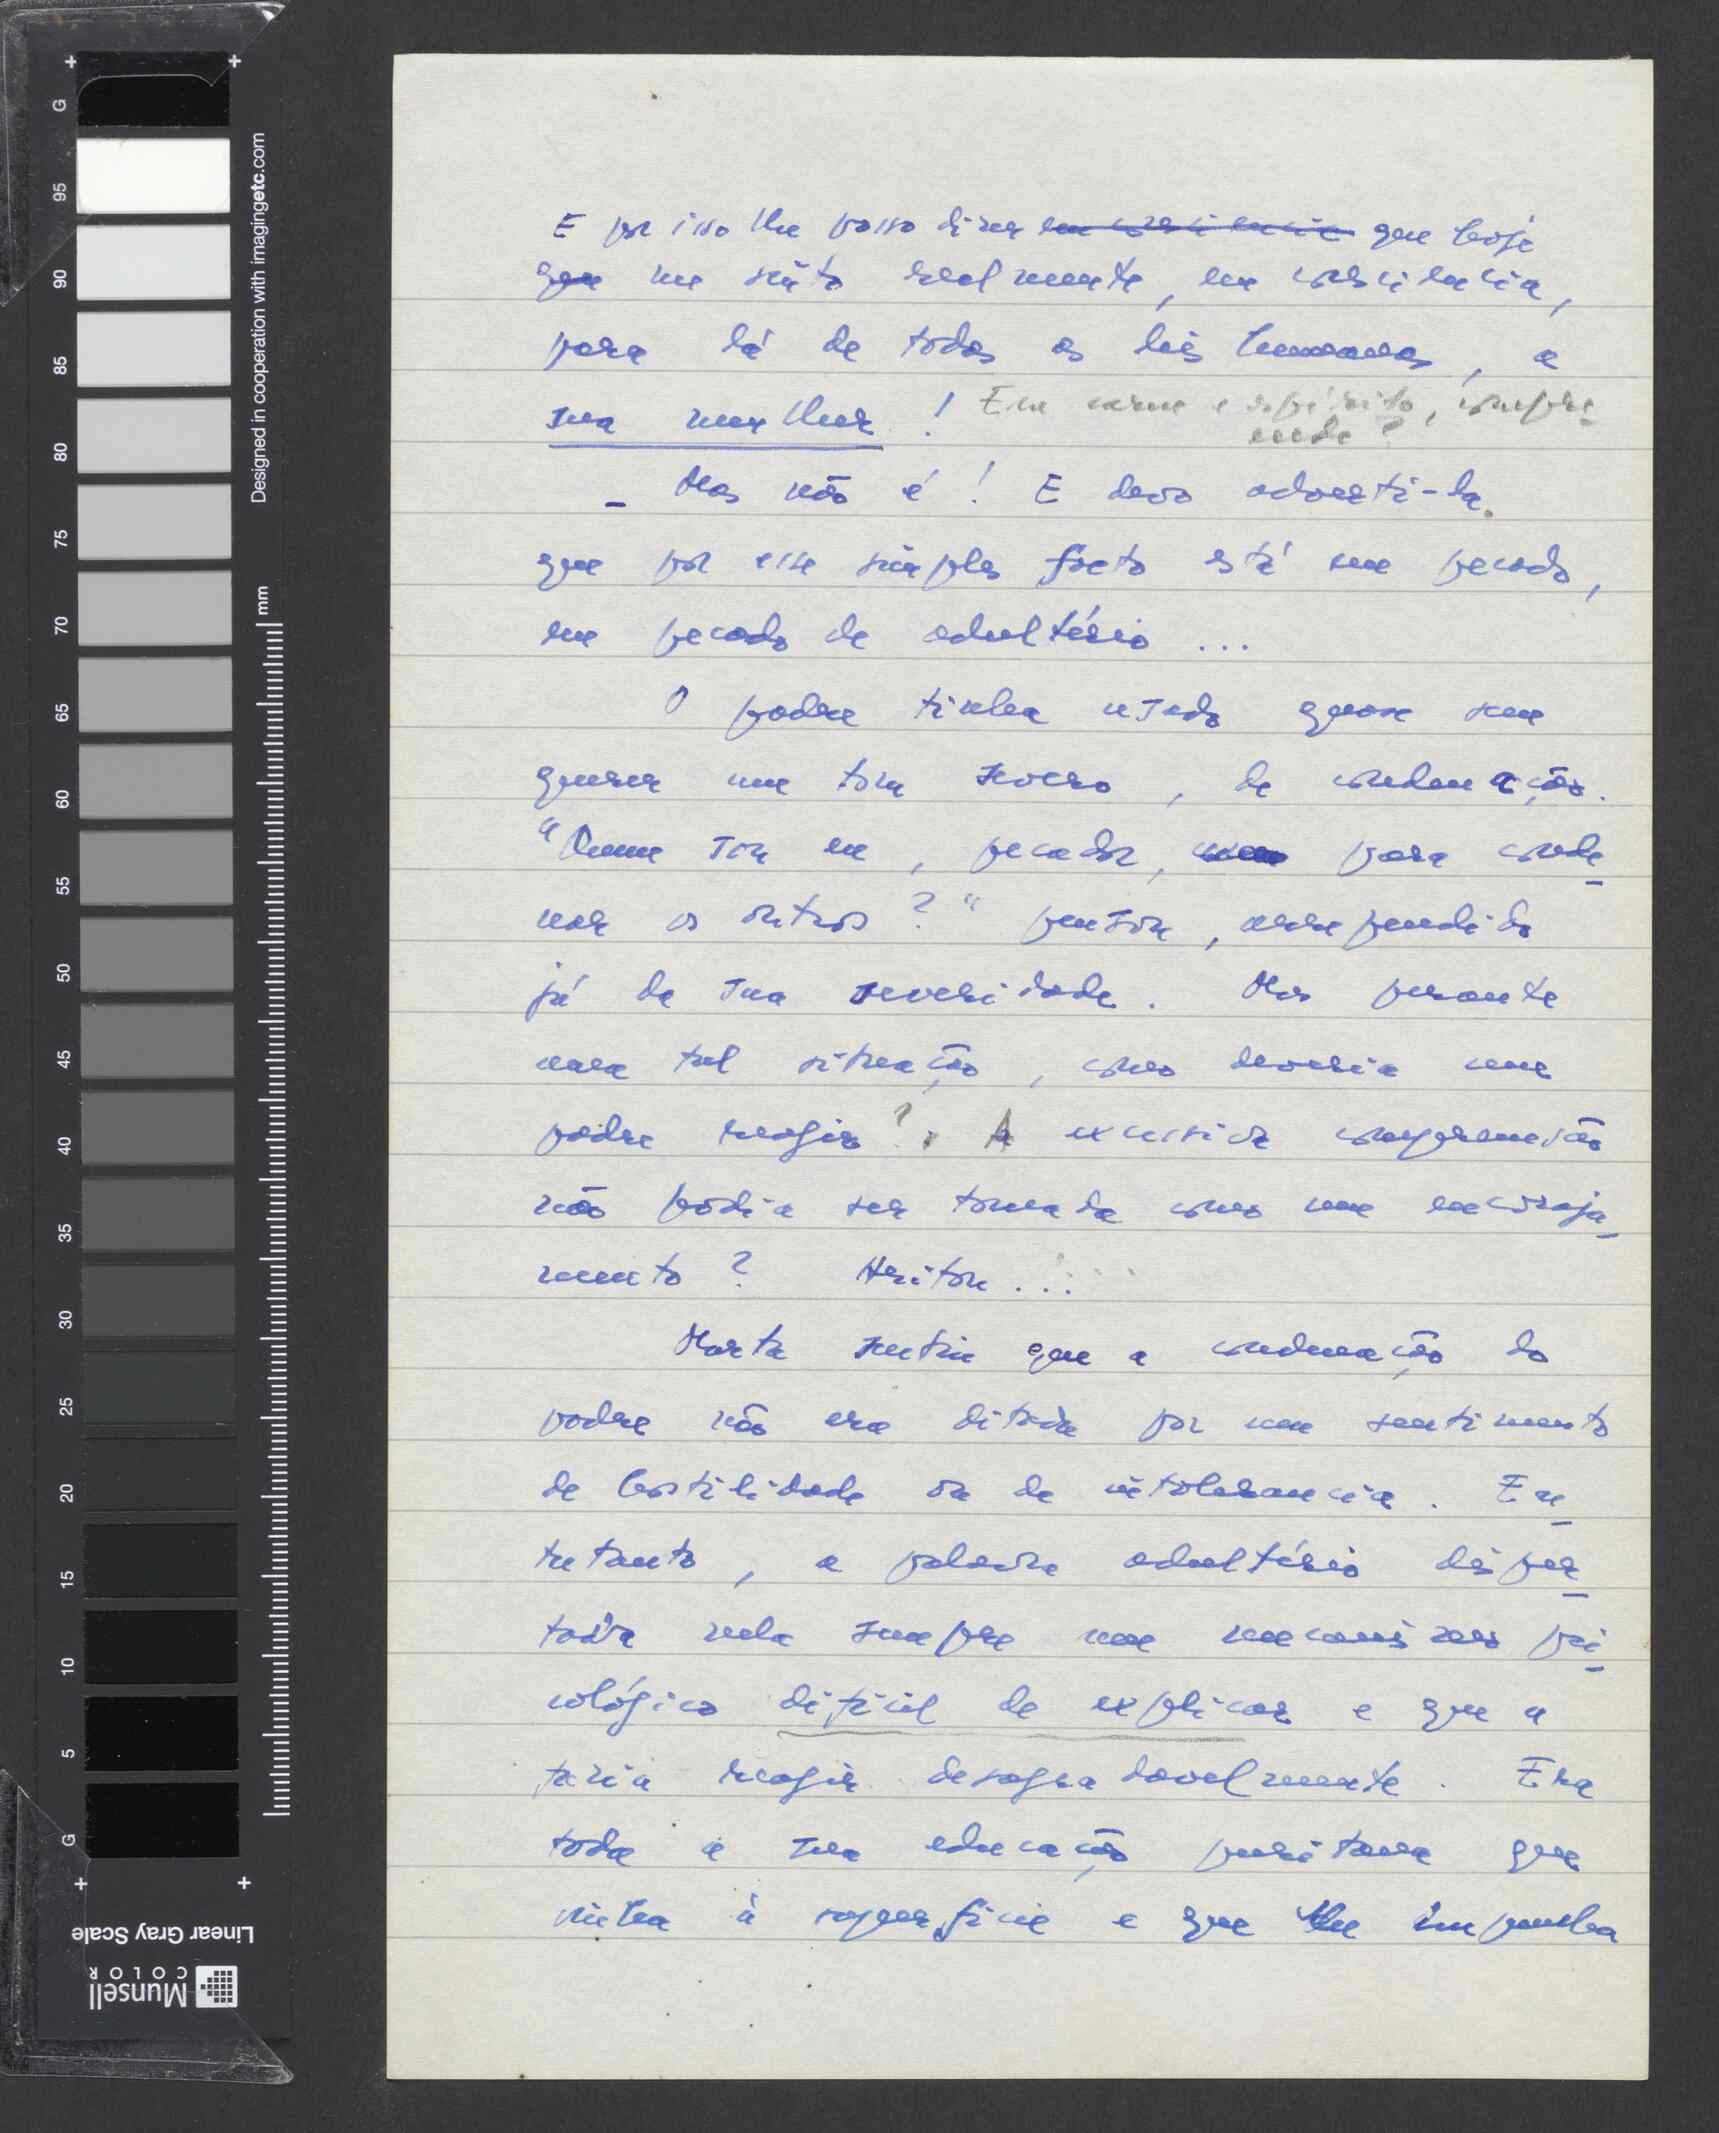 E por isso lhe posso dizer em consciência que hoje
que me sinto realmente, em consciencia,
para lá de todas as leis humanas, a
sua mulher! Em carne e espírito, compre-
ende?
- Mas não é! E devo adverti-la
que por esse simples facto está em pecado,
em pecado de adultério...
O padre tinha usado quase sem
querer um tom severo, de condenação.
"Quem sou eu, pecador, para conde-
nar os outros?" pensou, arrependido
já da sua severidade. Mas perante
uma tal situação, como deveria um
padre reagir? A excessiva compreensão
não podia ser tomada como um encoraja-
mento? Hesitou...
Marta sentiu que a condenação do
padre não era ditada por um sentimento
de hostilidade ou de intolerancia. En-
tretanto, a palavra adultério desper-
tava nela sempre um mecanismo psi-
cológico difícil de explicar e que a
fazia reagir desagradavelmente. Era
toda a sua educação puritana que
vinha à superfície e que lhe impunha
G
95
90
85
80
75
70
65
60
55
50
45
40
35
30
25
20
15
10
5
G
mm
Designed in cooperation with imagingetc.com
Linear Gray Scale
Munsell
COLOR